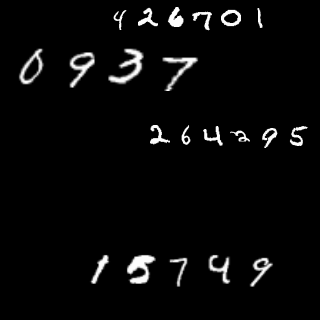 426701
0937
264295
15749